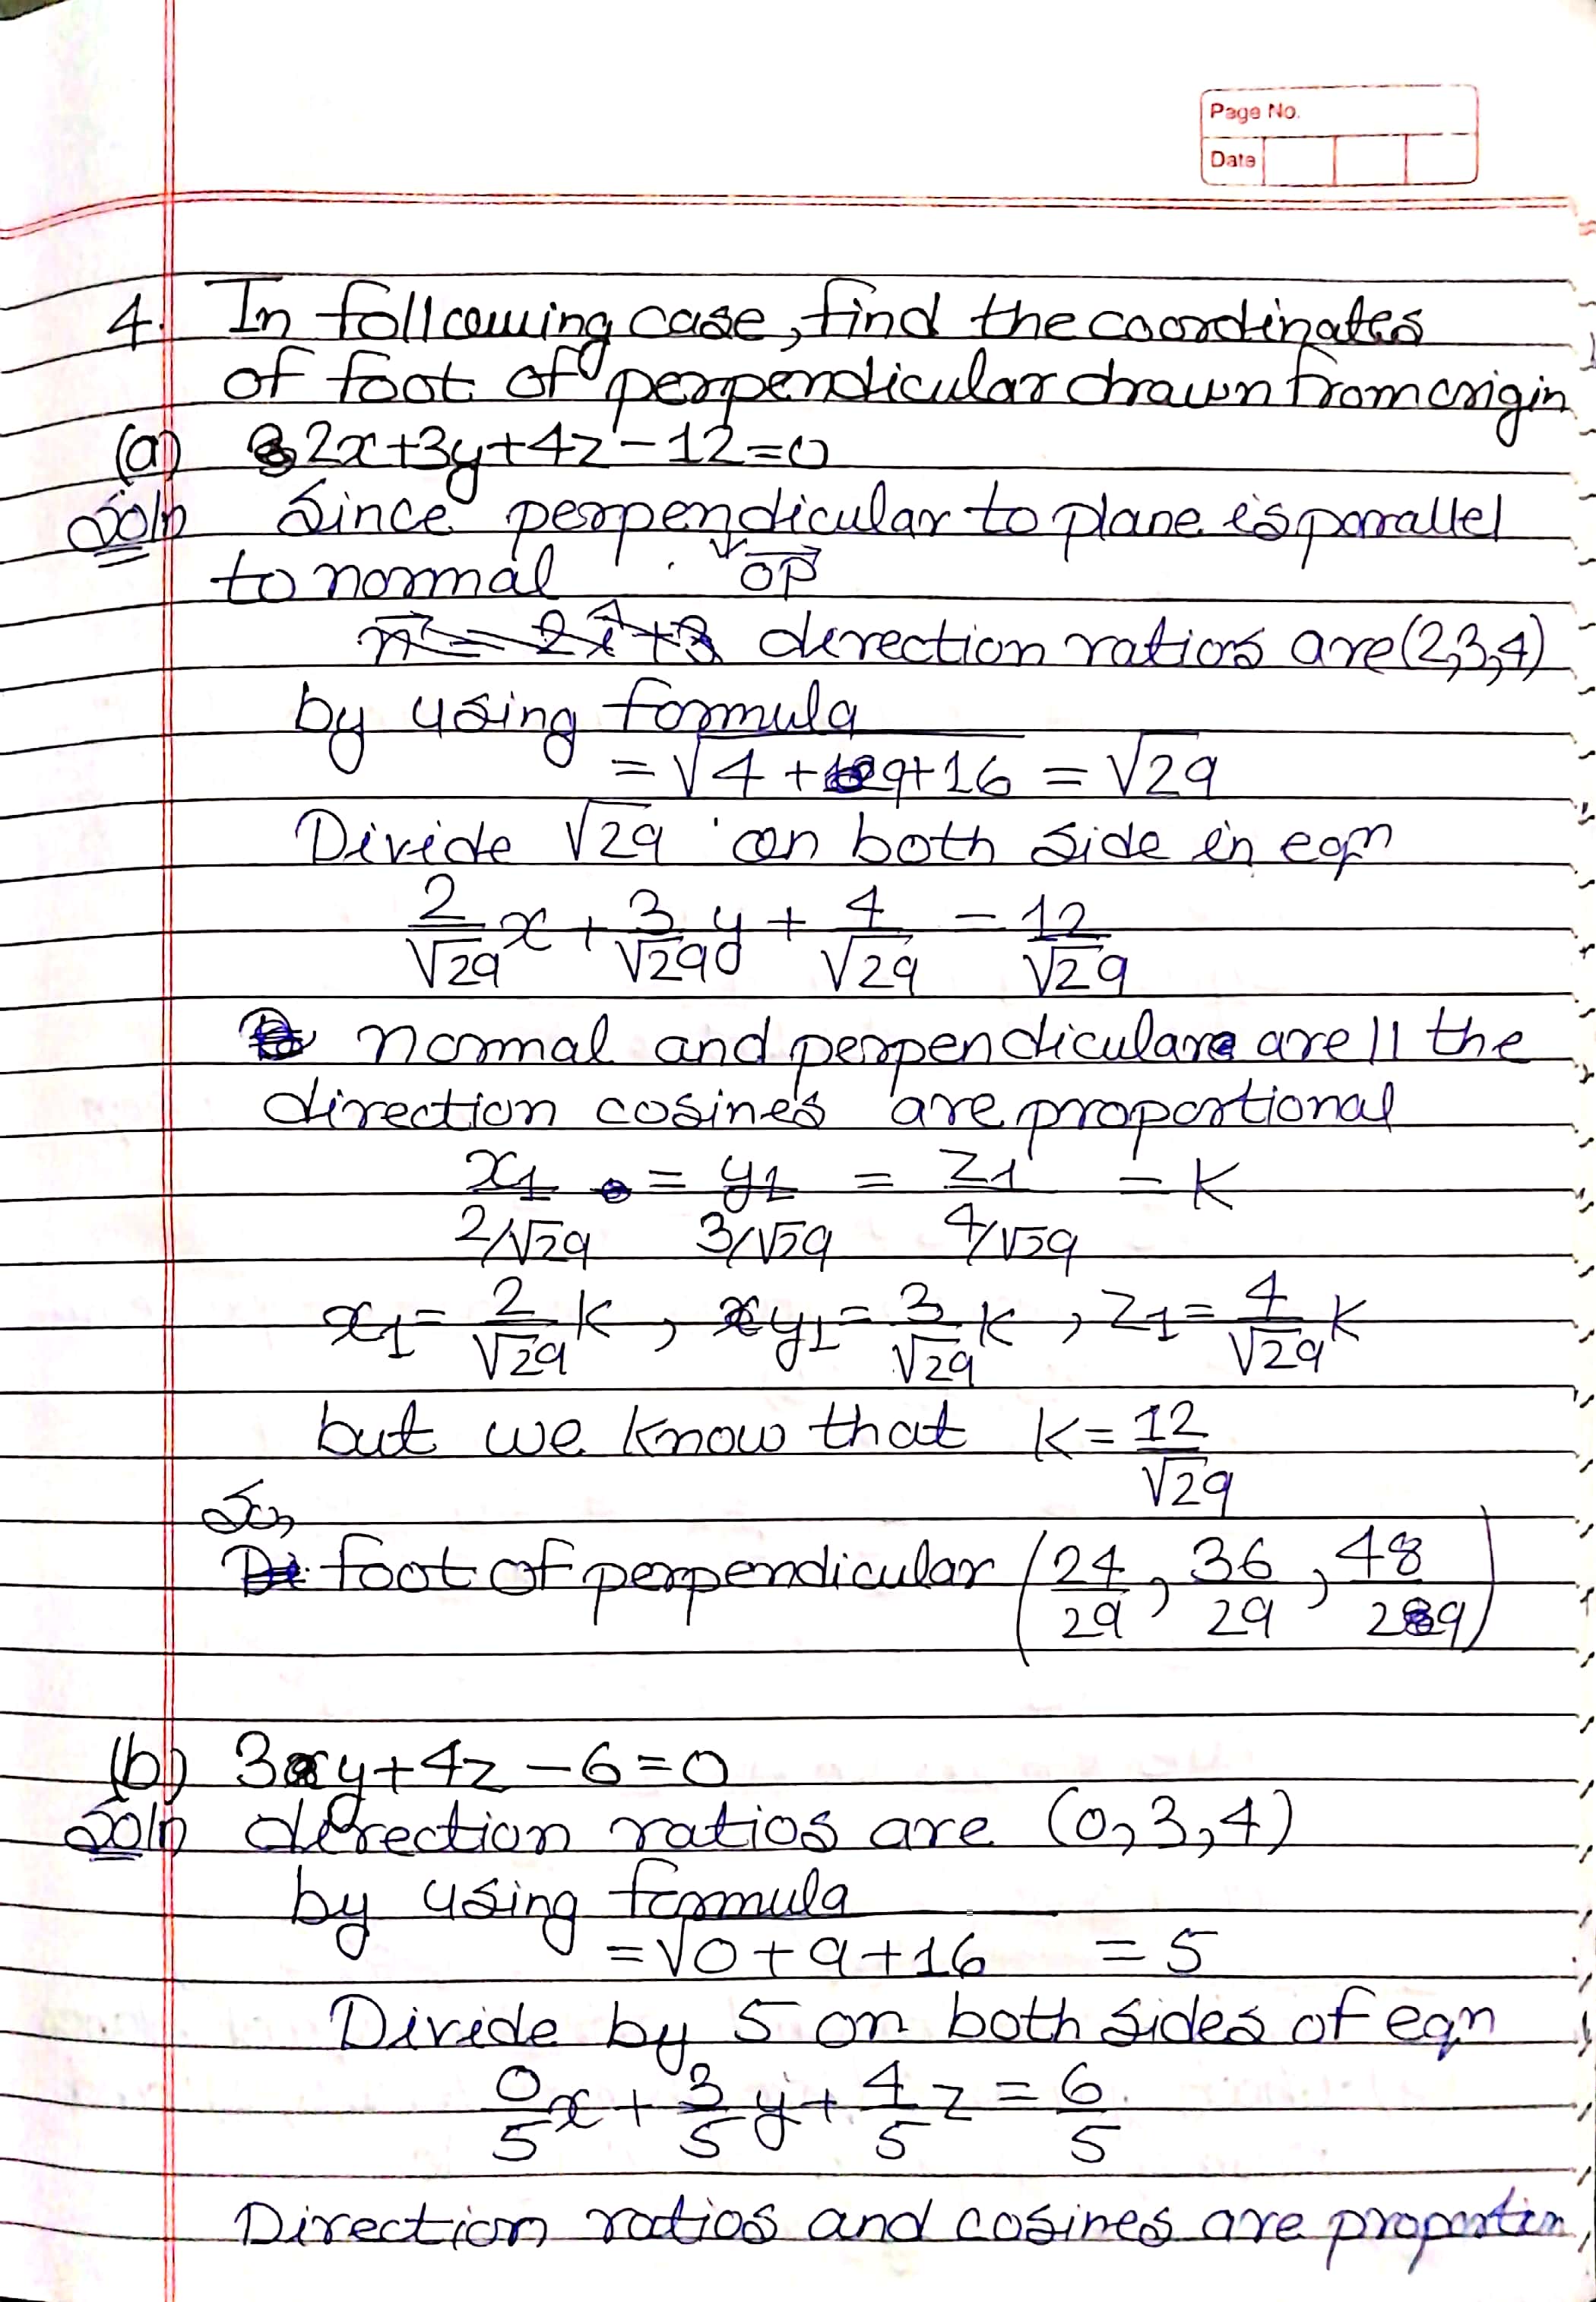 Page No.
Date
4. In following case, find the coordinates
of foot of perpendicular drawn from origin
(a) 2x+3y+4z-12=0
Soln Since perpendicular to plane is parallel
to normal OP→
n→ = 2i^+3 direction ratios are (2,3,4)
by using formula
= √4+9+16 = √29
Divide √29 on both side in eqn
2/√29 x + 3/√29 y + 4/√29 = 12/√29
normal and perpendicular are || the
direction cosines are proportional
x1/2/√29 = y1/3/√29 = z1/4/√29 = K
x1 = 2/√29 K, y1 = 3/√29 K, z1 = 4/√29 K
but we know that K = 12/√29
So,
foot of perpendicular (24/29, 36/29, 48/29)
(b) 3y+4z-6=0
Soln direction ratios are (0,3,4)
by using formula
= √0+9+16 = 5
Divide by 5 on both sides of eqn
0/5 x + 3/5 y + 4/5 z = 6/5
Direction ratios and cosines are proportion,